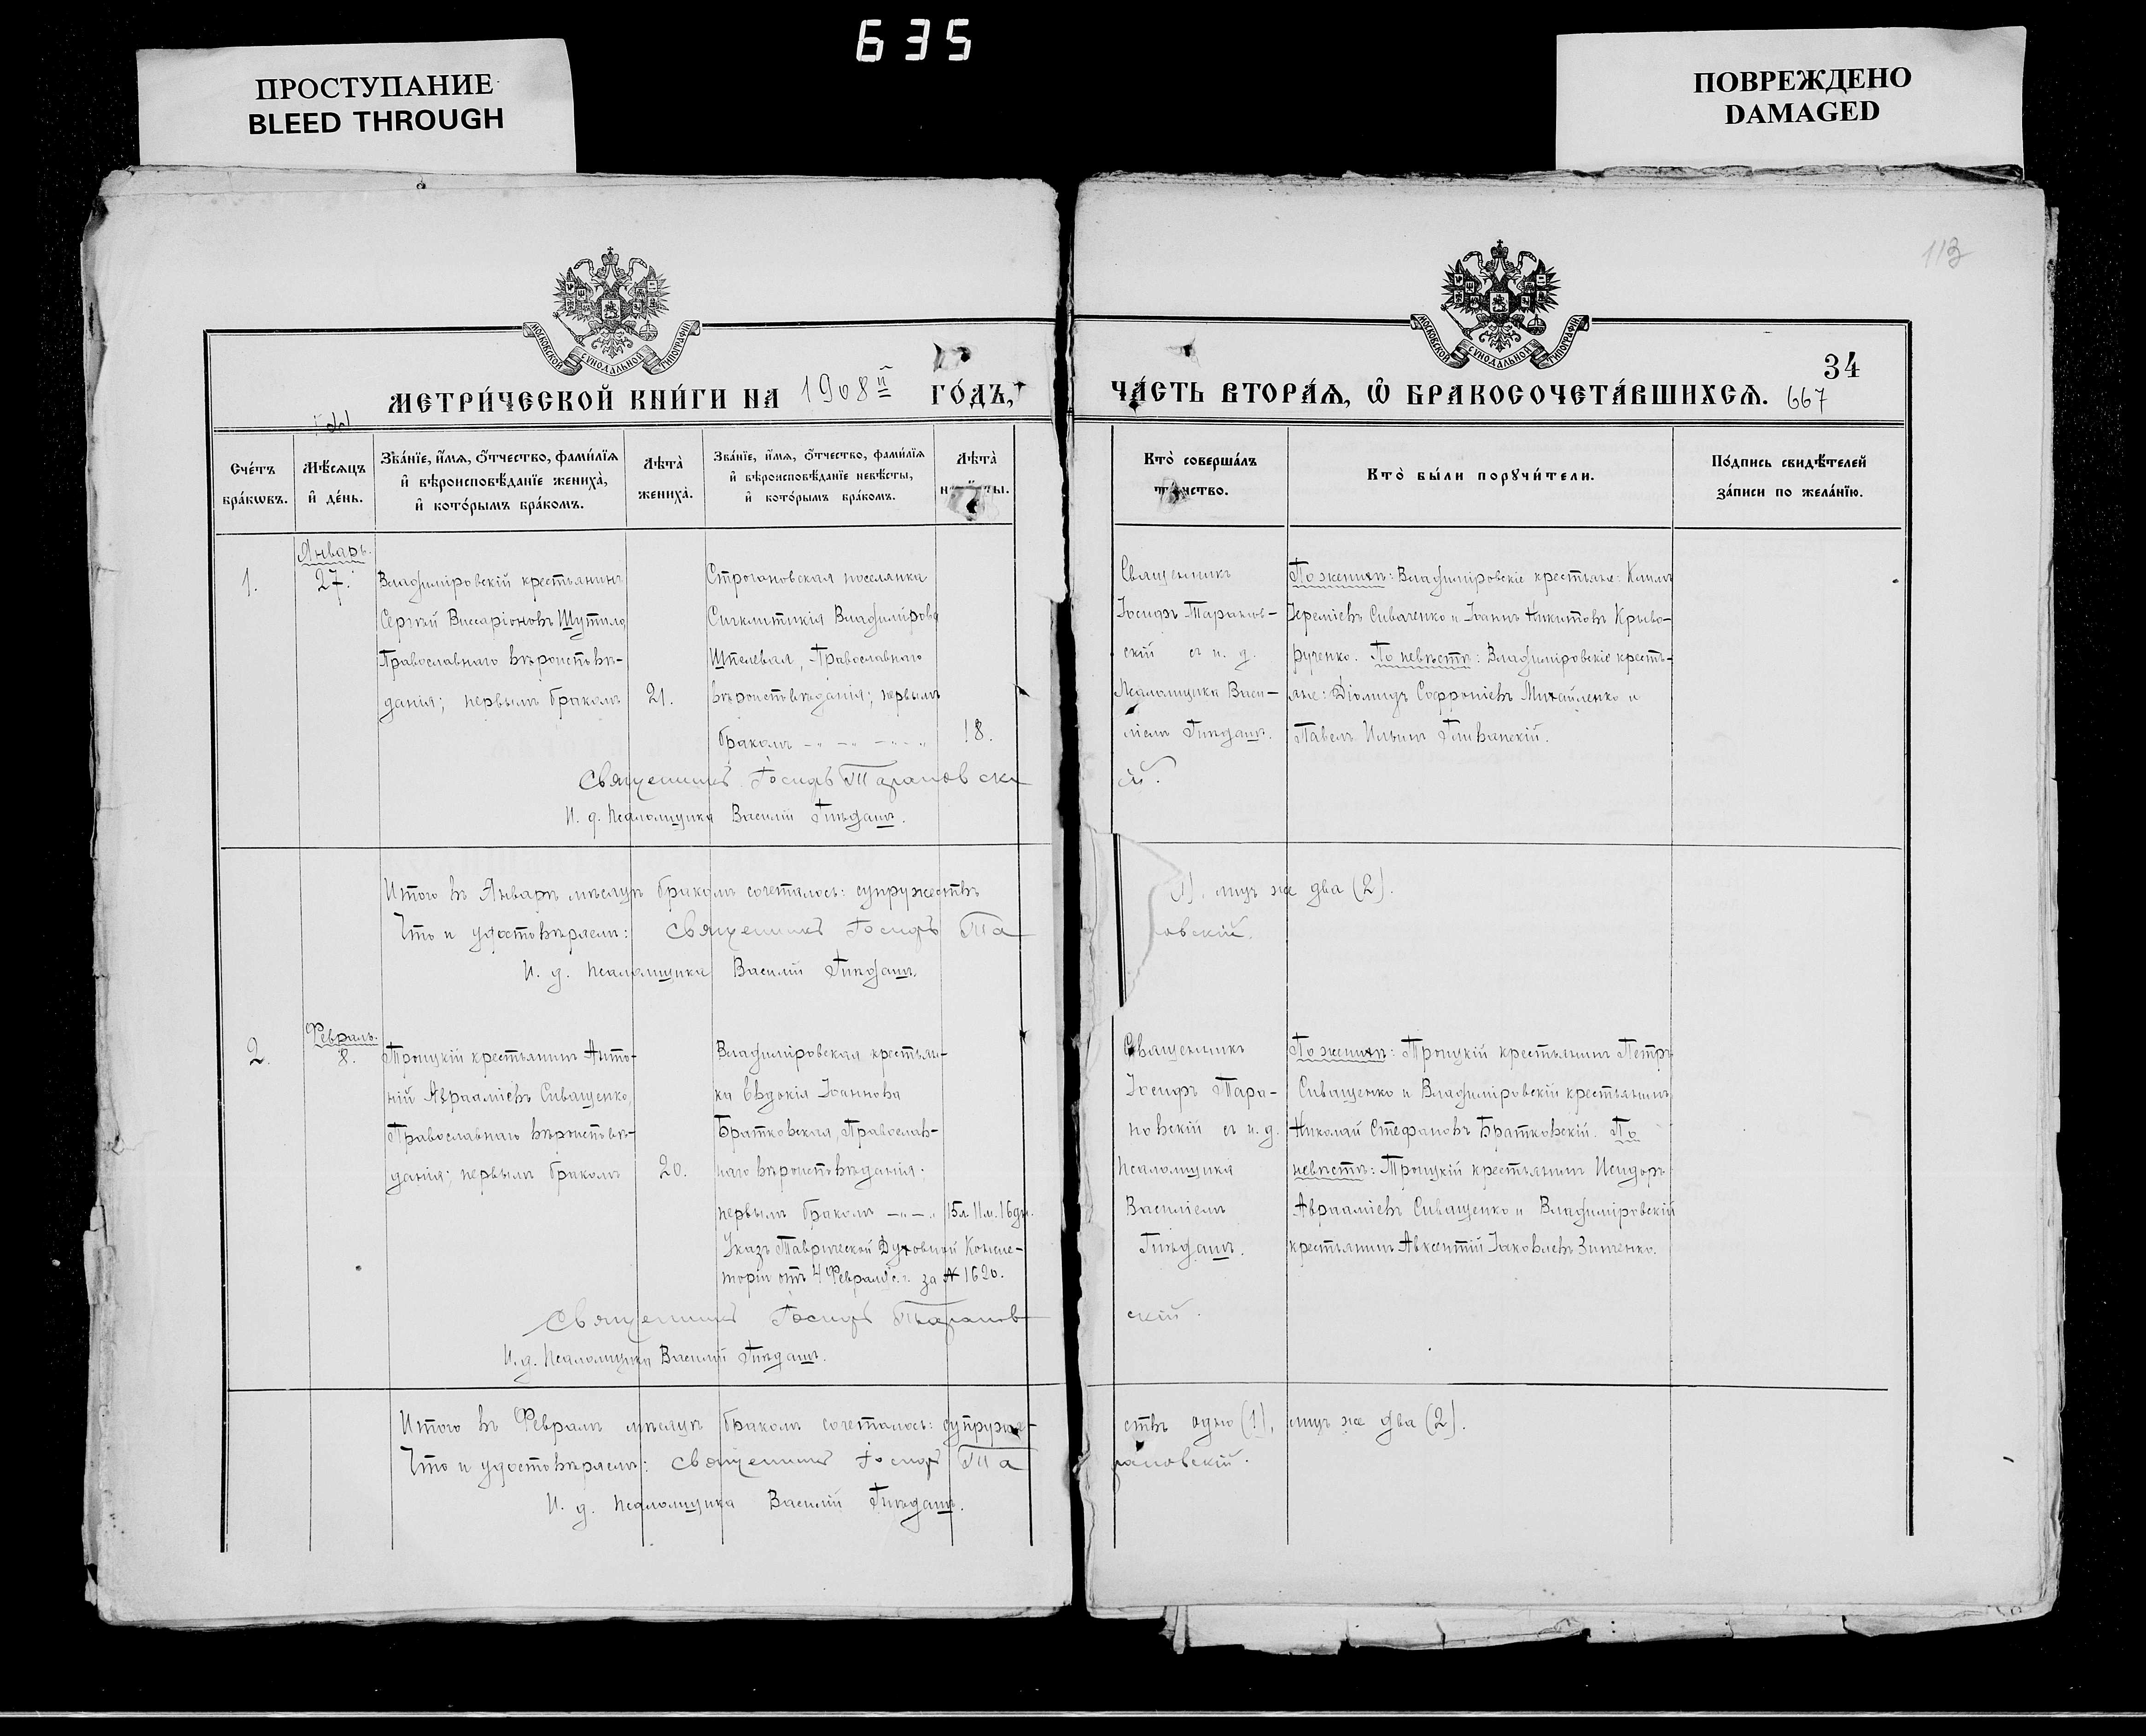 635
ПРОСТУПАНИЕ
BLEED THROUGH
ПОВРЕЖДЕНО
DAMAGED
113
МОСКОВСКОЙ СУНОДАЛЬНОЙ ТИПОГРАФІИ
МОСКОВСКОЙ СУНОДАЛЬНОЙ ТИПОГРАФІИ
34
МЕТРИ́ЧЕСКОЙ КНИ́ГИ НА 1908й ГО́ДЪ,
ЧА́СТЬ ВТОРА́Ѧ, Ѡ҆ БРАКОСОЧЕТА́ВШИХСѦ. 667
Сче́тъ бра́кѡвъ.
Мѣ́сѧцъ и҆ де́нь.
Зва́нїе, и҆́мѧ, ѻ҆́тчество, фами́лїѧ и҆ вѣроисповѣ́данїе жениха̀, и҆ кото́рымъ бра́комъ.
Лѣта̀ жениха̀.
Зва́нїе, и҆́мѧ, ѻ҆́тчество, фами́лїѧ и҆ вѣроисповѣ́данїе невѣ́сты, и҆ кото́рымъ бра́комъ.
Лѣта̀
Кто̀ соверша́лъ
Кто̀ бы́ли порꙋчи́тели.
По́дпись свидѣ́телей за́писи по жела́нїю.
1.
Январь.
27.
Владиміровскій крестьянинъ
Сергѣй Виссаріоновъ Шутило,
Православнаго вѣроисповѣ-
данія; первымъ бракомъ
21.
Строгановская поселянка
Сигклитикія Владимірова
Шпелевая, Православнаго
вѣроисповѣданія; первымъ
бракомъ
18.
Священникъ
Іосифъ Таранов-
скій съ и. д.
Псаломщика Васи-
ліемъ Гиндашъ.
По женихѣ: Владиміровскіе крестьяне: Климъ
Іереміевъ Сиваченко и Іоаннъ Никитовъ Крыво-
рученко. По невѣстѣ: Владиміровскіе кресть-
яне: Діомидъ Софроніевъ Михайленко и
Павелъ Ильинъ Гливанскій.
Священникъ Іосифъ Тарановскій.
И. д. Псаломщика Василій Гиндашъ.
Итого въ Январѣ мѣсяцѣ бракомъ сочеталось: супружествъ 1), лицъ же два (2).
Что и удостовѣряемъ: Священникъ Іосифъ Та овскій.
И. д. Псаломщика Василій Гиндашъ.
2.
Февраль.
8.
Троицкій крестьянинъ Анто-
ній Авраміевъ Сиващенко,
Православнаго вѣроисповѣ-
данія; первымъ бракомъ
20.
Владиміровская крестьян-
ка Евдокія Іоаннова
Братковская, Православ-
наго вѣроисповѣданія;
первымъ бракомъ
15л. 11м. 16дн.
Указъ Таврической Духовной Консис-
торіи отъ 4 Февраля с. г. за № 1620.
Священникъ
Іосифъ Тара-
новскій съ и. д.
Псаломщика
Василіемъ
Гиндашъ.
По женихѣ: Троицкій крестьянинъ Петръ
Сиващенко и Владиміровскій крестьянинъ
Николай Стефановъ Братковскій. По
невѣстѣ: Троицкій крестьянинъ Исидоръ
Авраміевъ Сиващенко и Владиміровскій
крестьянинъ Авксентій Іаковлевъ Зинченко.
Священникъ Іосифъ Тарановскій.
И. д. Псаломщика Василій Гиндашъ.
Итого въ Февралѣ мѣсяцѣ бракомъ сочеталось: супруже-ствъ одно (1), лицъ же два (2).
Что и удостовѣряемъ: Священникъ Іосифъ Тарановскій.
И. д. Псаломщика Василій Гиндашъ.